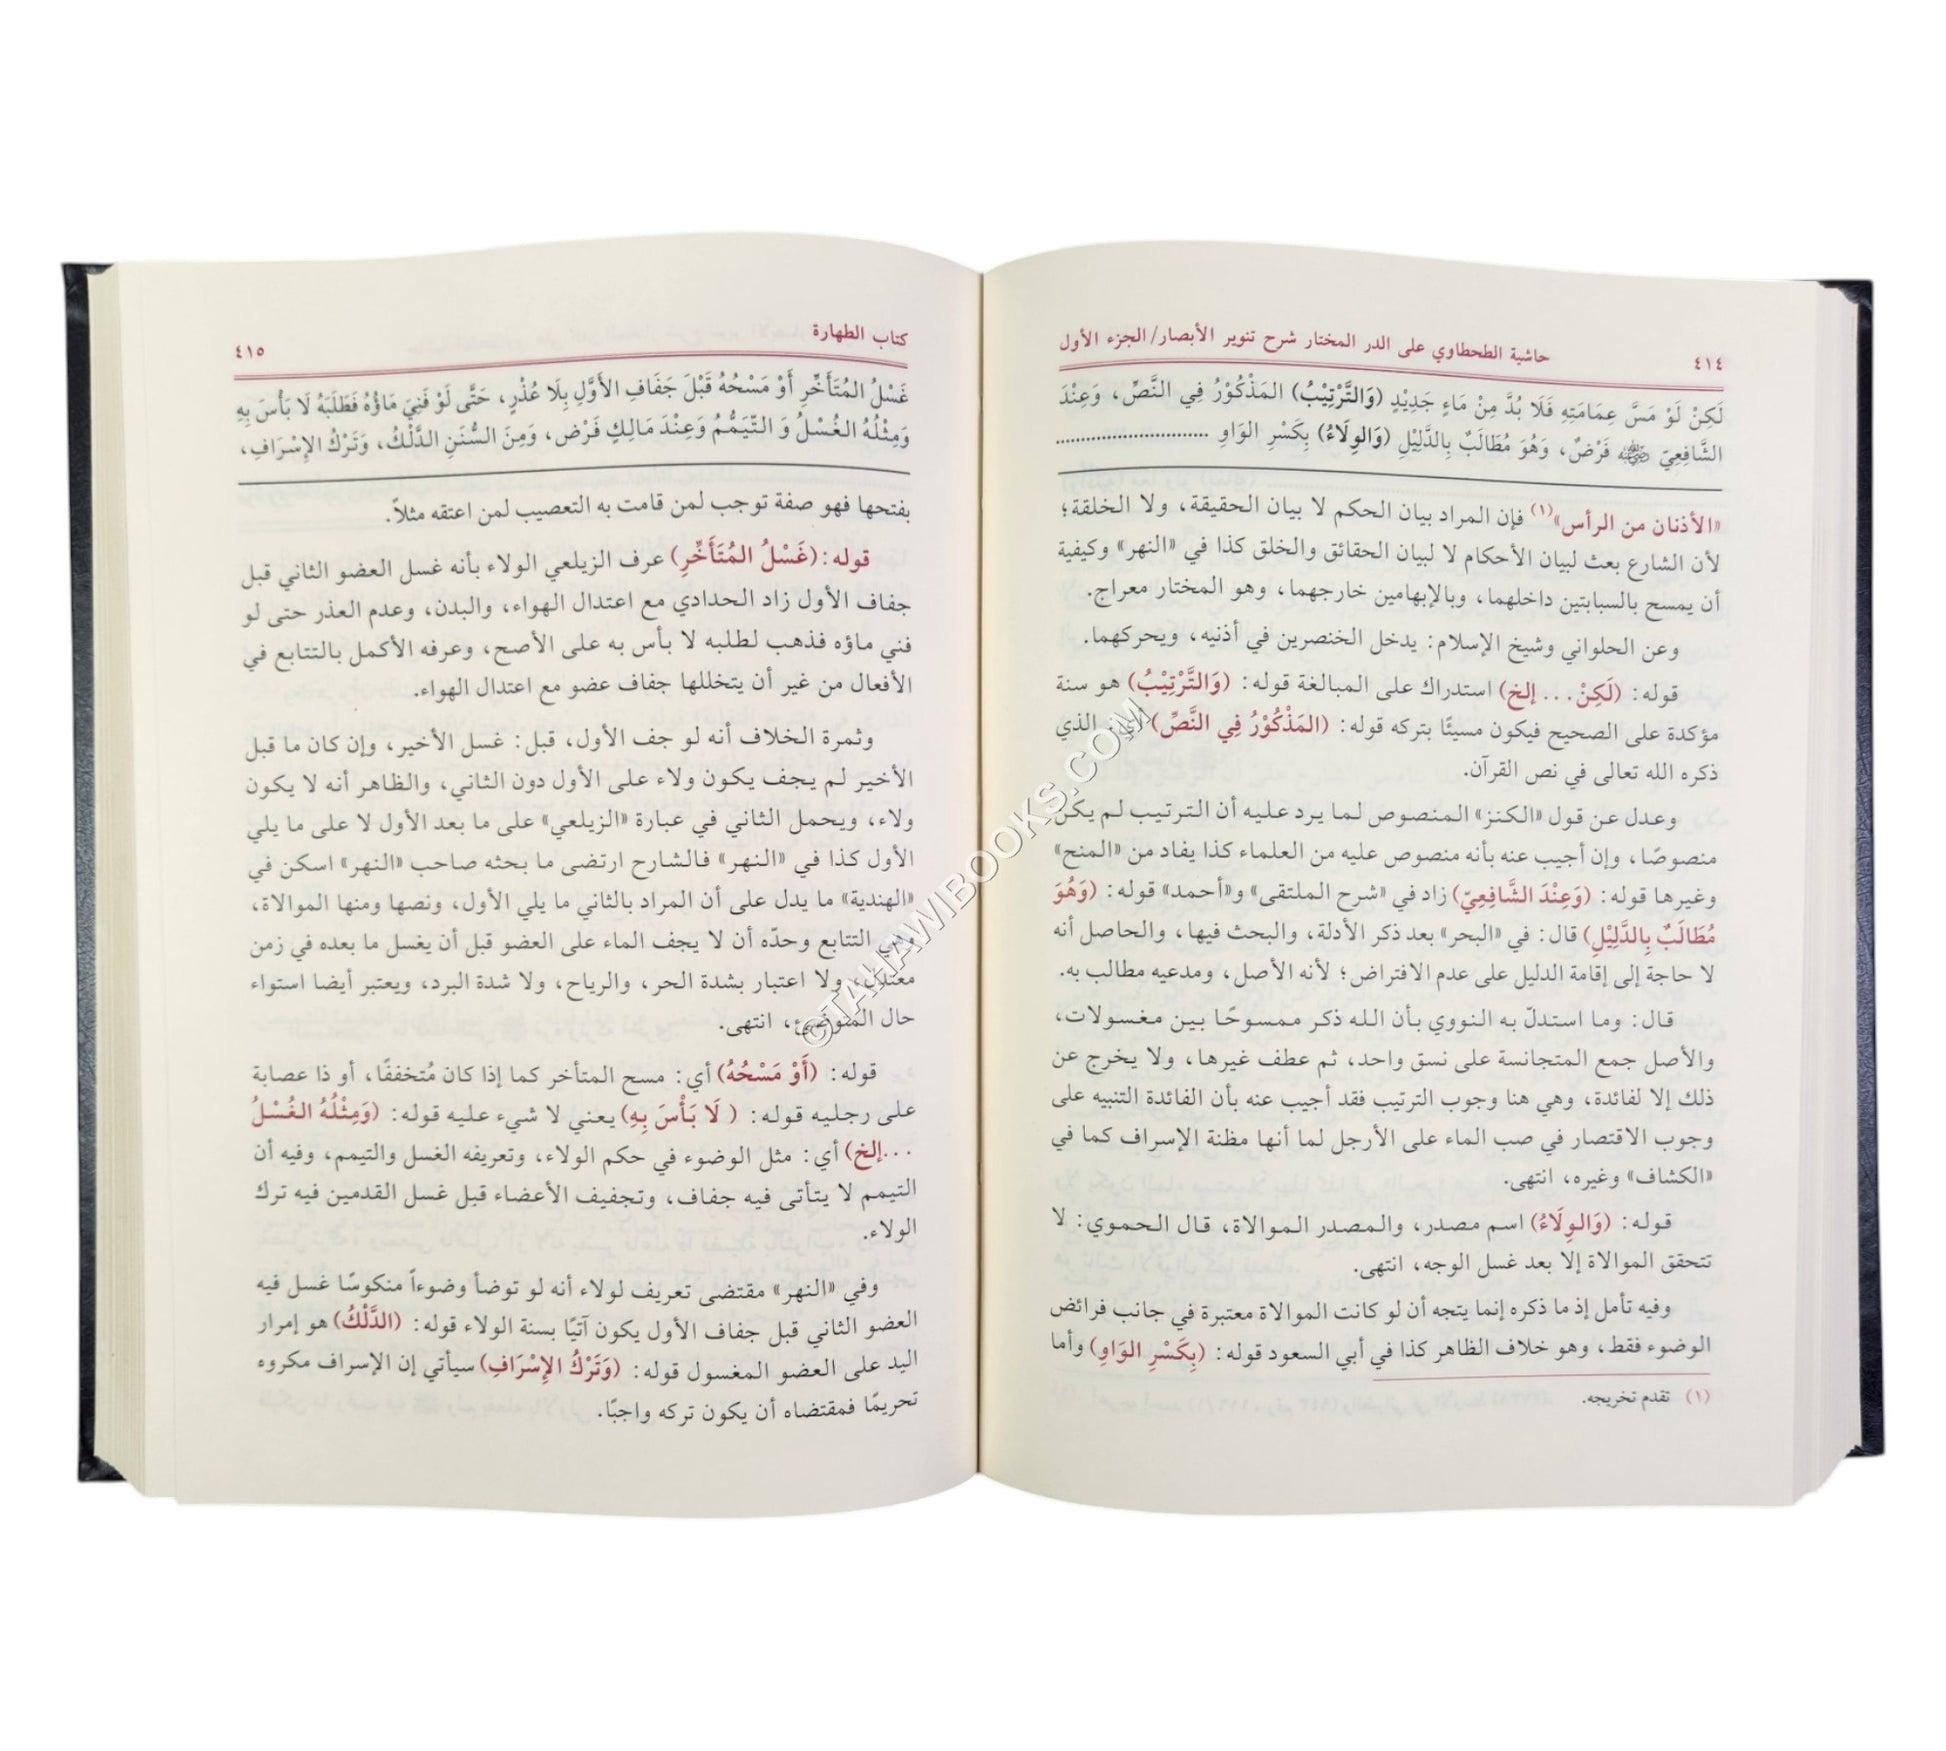 ٤١٤ حاشية الطحطاوي على الدر المختار شرح تنوير الأبصار/الجزء الأول
لَكِنْ لَوْ مَسَّ عِمَامَتِهِ فَلَا بُدَّ مِنْ مَاءٍ جَدِيْدٍ (وَالتَّرْتِيْبُ) المَذْكُوْرُ فِي النَّصِّ، وَعِنْدَ
الشَّافِعِيّ رضي الله عنه فَرْضٌ، وَهُوَ مُطَالَبٌ بِالدَّلِيْلِ (وَالوِلَاءُ) بِكَسْرِ الوَاوِ ..............................
«الأذنان من الرأس»(١) فإن المراد بيان الحكم لا بيان الحقيقة، ولا الخلقة؛
لأن الشارع بعث لبيان الأحكام لا لبيان الحقائق والخلق كذا في «النهر» وكيفية
أن يمسح بالسبابتين داخلهما، وبالإبهامين خارجهما، وهو المختار معراج.
وعن الحلواني وشيخ الإسلام: يدخل الخنصرين في أذنيه، ويحركهما.
قوله: (لَكِنْ... إلخ) استدراك على المبالغة قوله: (وَالتَّرْتِيْبُ) هو سنة
مؤكدة على الصحيح فيكون مسيئًا بتركه قوله: (المَذْكُوْرُ فِي النَّصِّ) أي: الذي
ذكره الله تعالى في نص القرآن.
وعدل عن قول «الكنز» المنصوص لما يرد عليه أن الترتيب لم يكن
منصوصًا، وإن أجيب عنه بأنه منصوص عليه من العلماء كذا يفاد من «المنح»
وغيرها قوله: (وَعِنْدَ الشَّافِعِيّ) زاد في «شرح الملتقى» و«أحمد» قوله: (وَهُوَ
مُطَالَبٌ بِالدَّلِيْلِ) قال: في «البحر» بعد ذكر الأدلة، والبحث فيها، والحاصل أنه
لا حاجة إلى إقامة الدليل على عدم الافتراض؛ لأنه الأصل، ومدعيه مطالب به.
قال: وما استدلّ به النووي بأن الله ذكر ممسوحًا بين مغسولات،
والأصل جمع المتجانسة على نسق واحد، ثم عطف غيرها، ولا يخرج عن
ذلك إلا لفائدة، وهي هنا وجوب الترتيب فقد أجيب عنه بأن الفائدة التنبيه على
وجوب الاقتصار في صب الماء على الأرجل لما أنها مظنة الإسراف كما في
«الكشاف» وغيره، انتهى.
قوله: (وَالوِلَاءُ) اسم مصدر، والمصدر الموالاة، قال الحموي: لا
تتحقق الموالاة إلا بعد غسل الوجه، انتهى.
وفيه تأمل إذ ما ذكره إنما يتجه أن لو كانت الموالاة معتبرة في جانب فرائض
الوضوء فقط، وهو خلاف الظاهر كذا في أبي السعود قوله: (بِكَسْرِ الوَاوِ) وأما
(١) تقدم تخريجه.
كتاب الطهارة ٤١٥
غَسْلُ المُتَأَخِّرِ أَوْ مَسْحُهُ قَبْلَ جَفَافِ الأَوَّلِ بِلَا عُذْرٍ، حَتَّى لَوْ فَنِيَ مَاؤُهُ فَطَلَبَهُ لَا بَأْسَ بِهِ
وَمِثْلُهُ الغُسْلُ وَ التَّيَمُّمُ وَعِنْدَ مَالِكٍ فَرْض، وَمِنَ السُّنَنِ الدَّلْكُ، وَتَرْكُ الإِسْرَافِ،
بفتحها فهو صفة توجب لمن قامت به التعصيب لمن اعتقه مثلاً.
قوله: (غَسْلُ المُتَأَخِّرِ) عرف الزيلعي الولاء بأنه غسل العضو الثاني قبل
جفاف الأول زاد الحدادي مع اعتدال الهواء، والبدن، وعدم العذر حتى لو
فني ماؤه فذهب لطلبه لا بأس به على الأصح، وعرفه الأكمل بالتتابع في
الأفعال من غير أن يتخللها جفاف عضو مع اعتدال الهواء.
وثمرة الخلاف أنه لو جف الأول، قبل: غسل الأخير، وإن كان ما قبل
الأخير لم يجف يكون ولاء على الأول دون الثاني، والظاهر أنه لا يكون
ولاء، ويحمل الثاني في عبارة «الزيلعي» على ما بعد الأول لا على ما يلي
الأول كذا في «النهر» فالشارح ارتضى ما بحثه صاحب «النهر» اسكن في
«الهندية» ما يدل على أن المراد بالثاني ما يلي الأول، ونصها ومنها الموالاة،
وهي التتابع وحدّه أن لا يجف الماء على العضو قبل أن يغسل ما بعده في زمن
معتدل، ولا اعتبار بشدة الحر، والرياح، ولا شدة البرد، ويعتبر أيضا استواء
حال المتوضئ، انتهى.
قوله: (أَوْ مَسْحُهُ) أي: مسح المتأخر كما إذا كان مُتخففًا، أو ذا عصابة
على رجليه قوله: ( لَا بَأْسَ بِهِ) يعني لا شيء عليه قوله: (وَمِثْلُهُ الغُسْلُ
...إلخ) أي: مثل الوضوء في حكم الولاء، وتعريفه الغسل والتيمم، وفيه أن
التيمم لا يتأتى فيه جفاف، وتجفيف الأعضاء قبل غسل القدمين فيه ترك
الولاء.
وفي «النهر» مقتضى تعريف لولاء أنه لو توضأ وضوءاً منكوسًا غسل فيه
العضو الثاني قبل جفاف الأول يكون آتيًا بسنة الولاء قوله: (الدَّلْكُ) هو إمرار
اليد على العضو المغسول قوله: (وَتَرْكُ الإِسْرَافِ) سيأتي إن الإسراف مكروه
تحريمًا فمقتضاه أن يكون تركه واجبًا.
©TAHAWIBOOKS.COM